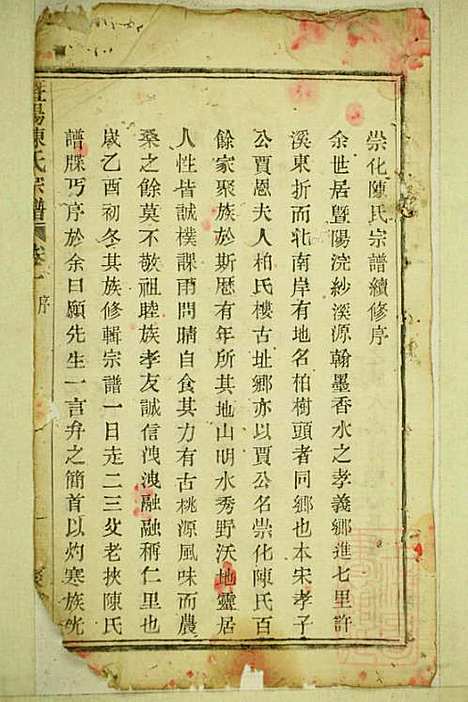 崇化陳氏宗譜續修序
余世居暨陽浣紗溪源翰墨香水之孝義鄉進七里許
溪東折而北南岸有地名柏樹頭者同鄉也本宋孝子
公賈恩夫人柏氏樓古址鄉亦以賈公名崇化陳氏百
餘家聚族於斯曆有年所其地山明水秀野沃地靈居
人性皆誠樸課雨問晴自食其力有古桃源風味而農
桑之餘莫不敬祖睦族孝友誠信洩洩融融稱仁里也
歲乙酉初冬其族修輯宗譜一日走二三父老挾陳氏
譜牒丐序於余曰願先生一言弁之簡首以灼寒族光
暨陽陳氏宗譜 卷 序